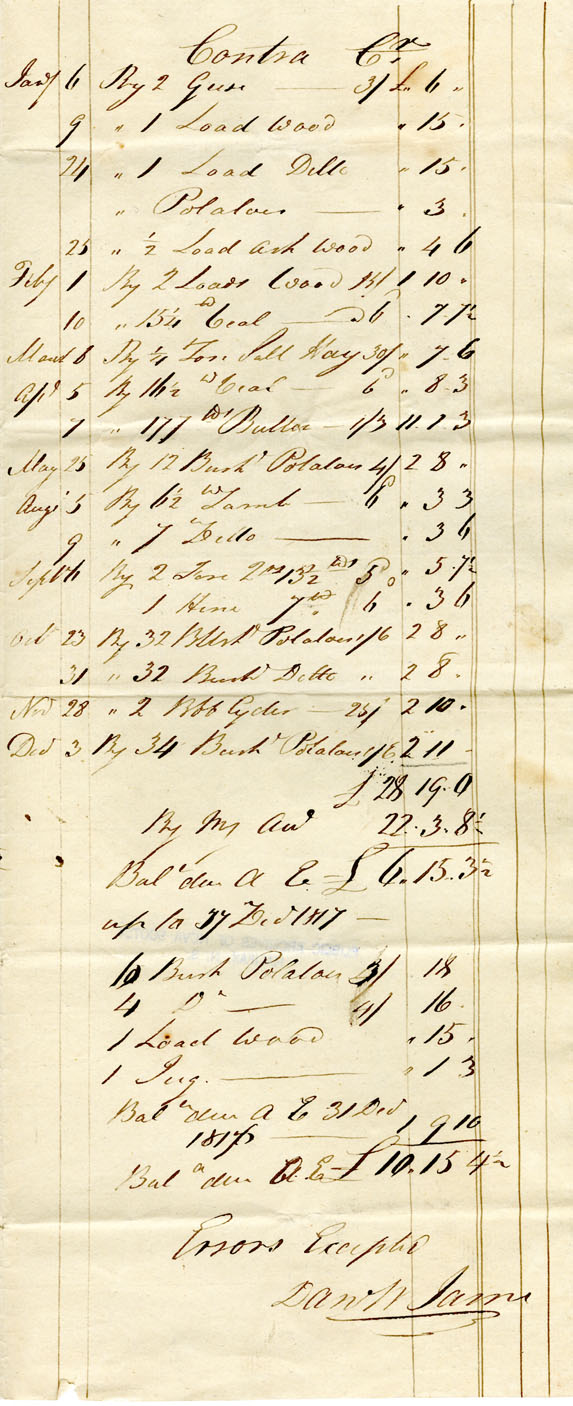 Contra Cr
Jany 6 By 2 Geese — 3/ £ " 6 "
9 " 1 Load Wood " 15 "
24 " 1 Load Ditto " 15 "
" Potatoes — " 3 "
25 " ½ Load Ash Wood " 4 6
Feby 1 By 2 Loads Wood 15/ 1 10 "
10 " 15¼ — 6d " 7 7½
8 By ¼ Ton Salt Hay 30/ " 7 6
Apl 5 By 16½ — 6d " 8 3
7 " 177 lbs Butter — 1/3 11 1 3
May 25 By 12 Bushl Potatoes 4/ 2 8 "
Augt 5 By 6½ lb Lamb — 6d " 3 3
9 " 7 Ditto — " 3 6
By 2 13½ lbs 5d " 5 7½
1 7 lb 6 " 3 6
Oct 23 By 32 Bushl Potatoes 1/6 2 8 "
31 " 32 Bushl Ditto " 2 8 "
Nov 28 " 2 Bbb Cyder — 25/ 2 10 "
Decr 3 By 34 Bushl Potatoes 1/6 2 11 –
£ 28 19 0
By My Acct 22 3 8½
Balce due A E = £ 6 15 3½
up to Decr 1817 —
6 Bush Potatoes 3/ 18
4 Do — 4/ 16
1 Load Wood " 15 "
1 Jug — " 1 3
Balce due A E 31 Decr
— 1 9 10
Balce due A E = £ 10 15 4½
Errors Excepted